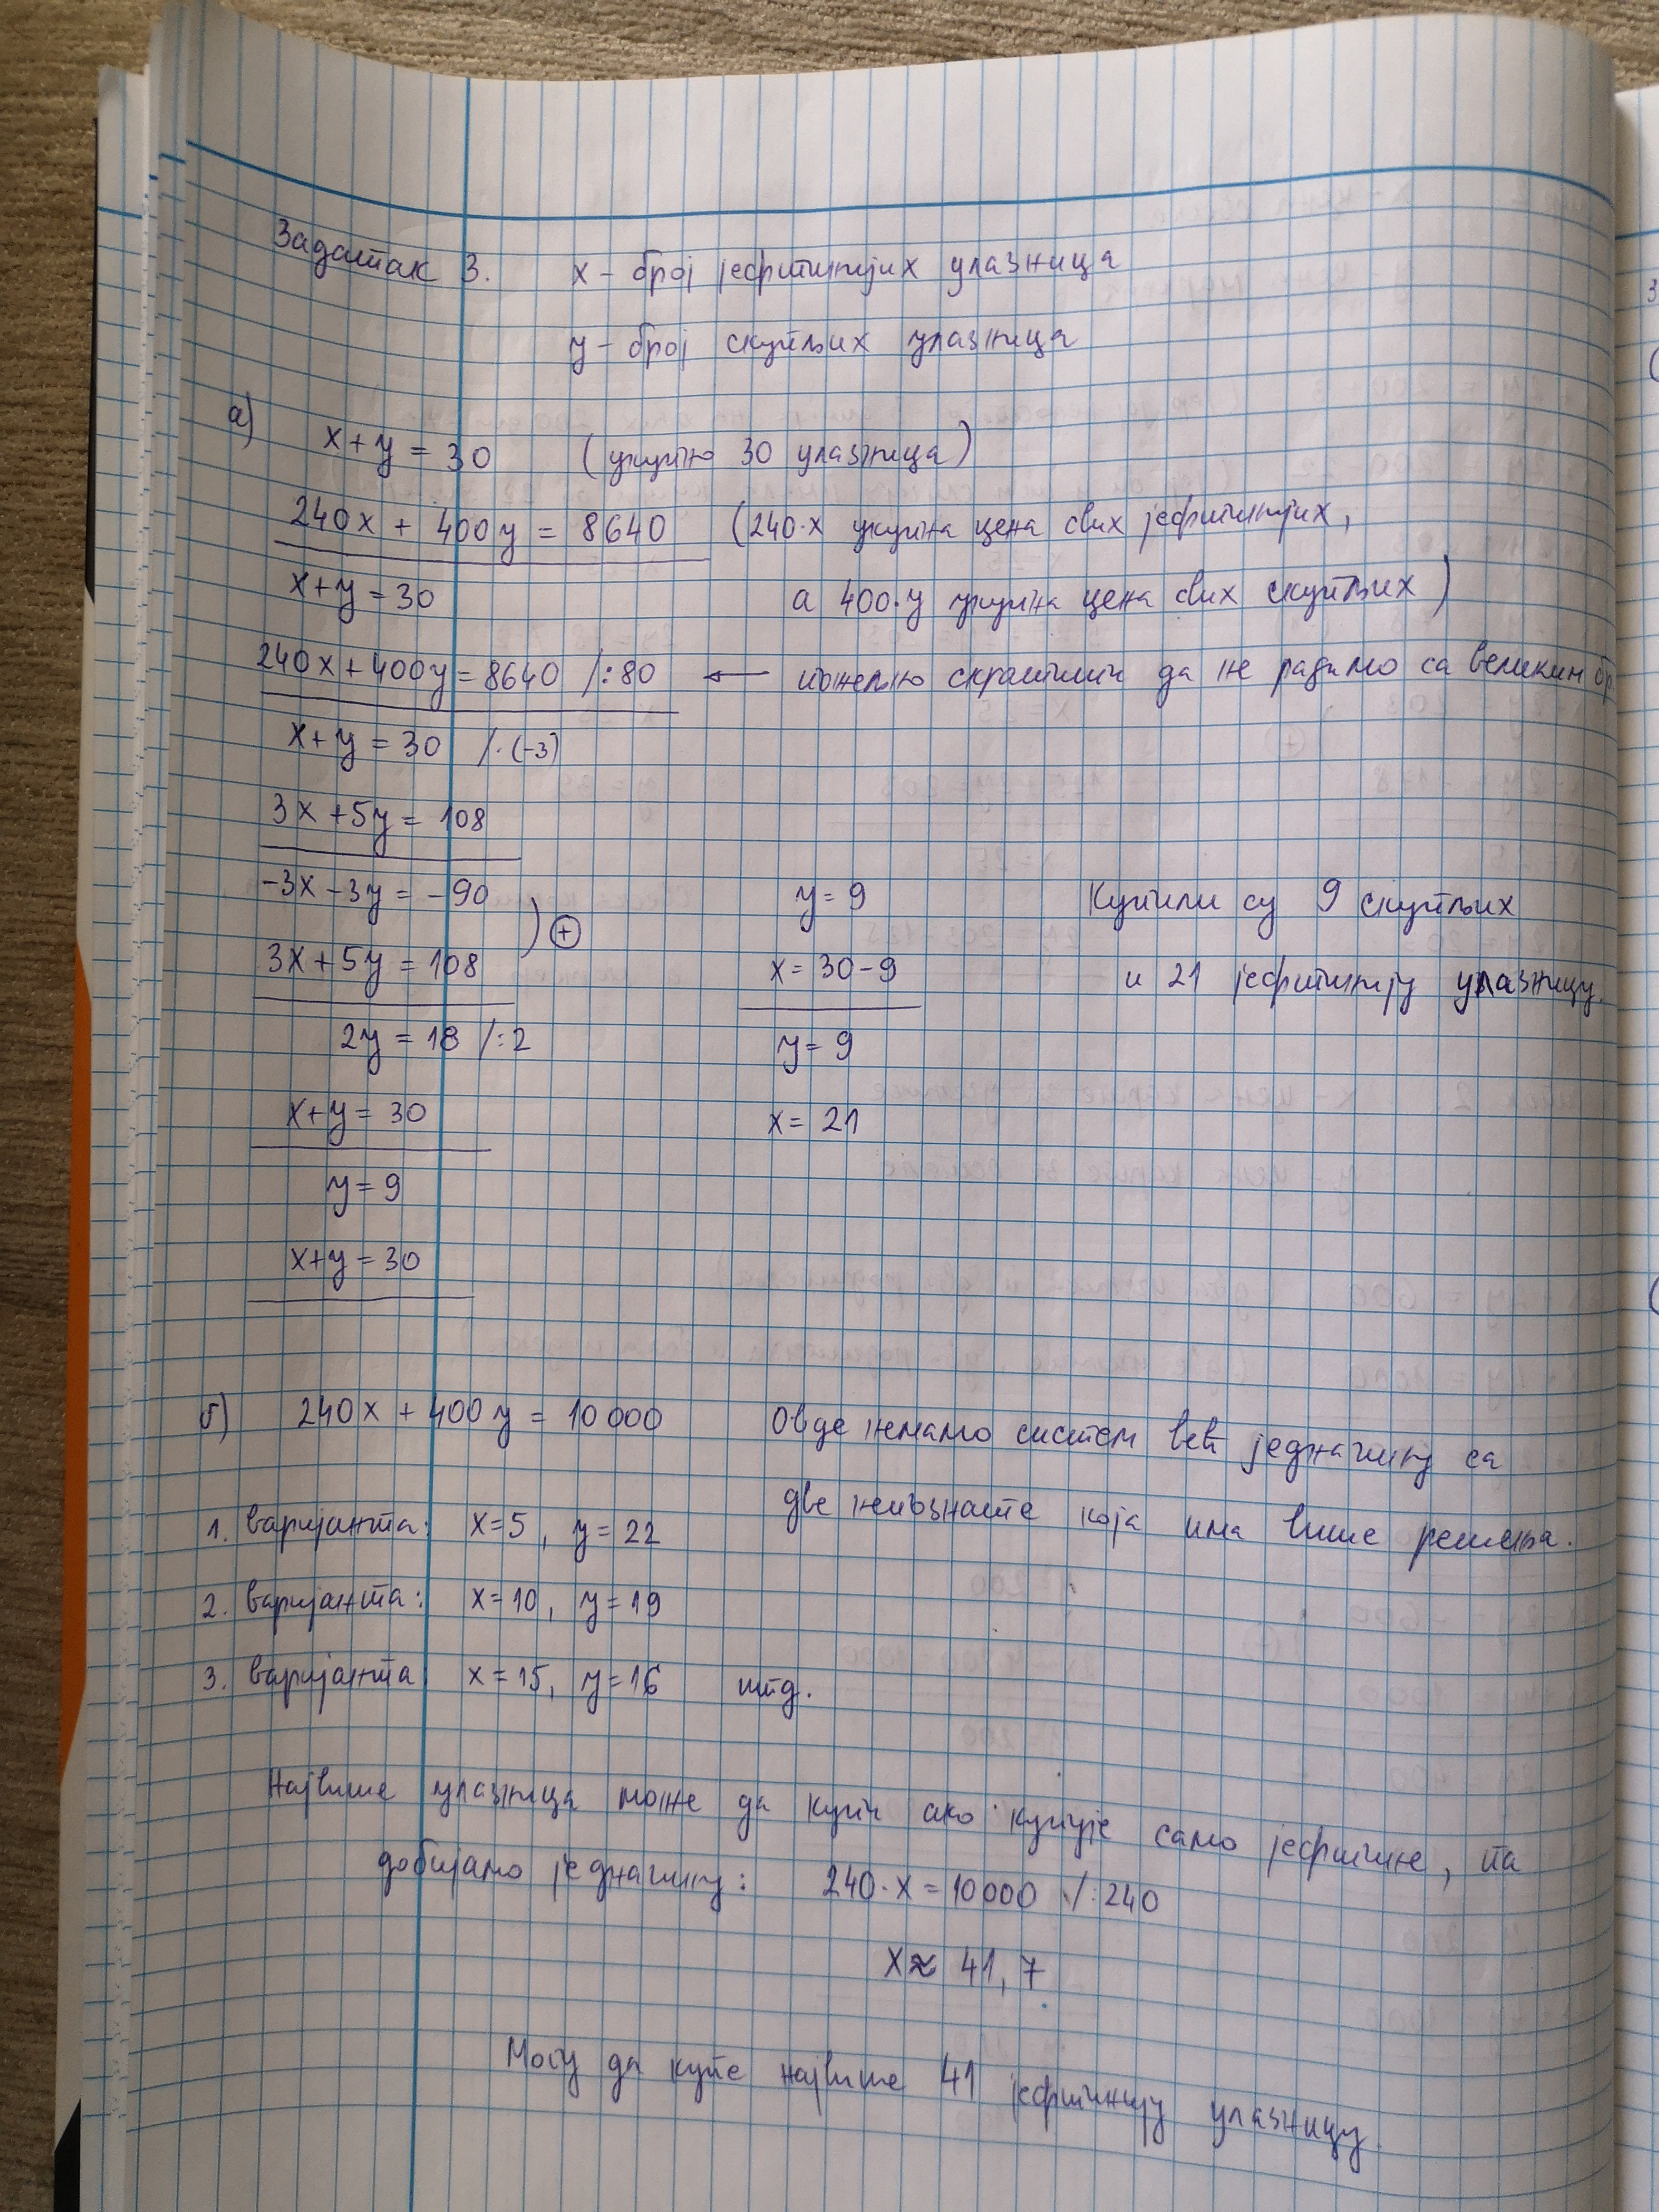 Задатак 3. x – број јефтинијих улазница
y – број скупљих улазница
а) x + y = 30 (укупно 30 улазница)
240x + 400y = 8640 (240·x укупна цена свих јефтинијих,
x + y = 30 а 400·y укупна цена свих скупљих)
240x + 400y = 8640 /:80 ← пожељно скратити да не радимо са великим бр.
x + y = 30 /·(-3)
3x + 5y = 108
-3x - 3y = -90
3x + 5y = 108 ) ⊕
2y = 18 /:2
x + y = 30
y = 9
x + y = 30
y = 9
x = 30 - 9
y = 9
x = 21
Купили су 9 скупљих
и 21 јефтинију улазницу.
б) 240x + 400y = 10000 Овде немамо систем већ једначину са
две непознате која има више решења.
1. варијанта: x=5, y=22
2. варијанта: x=10, y=19
3. варијанта: x=15, y=16 итд.
Највише улазница може да купи ако купује само јефтине, па
добијамо једначину: 240·x = 10000 /:240
x ≈ 41,7
Могу да купе највише 41 јефтинију улазницу.